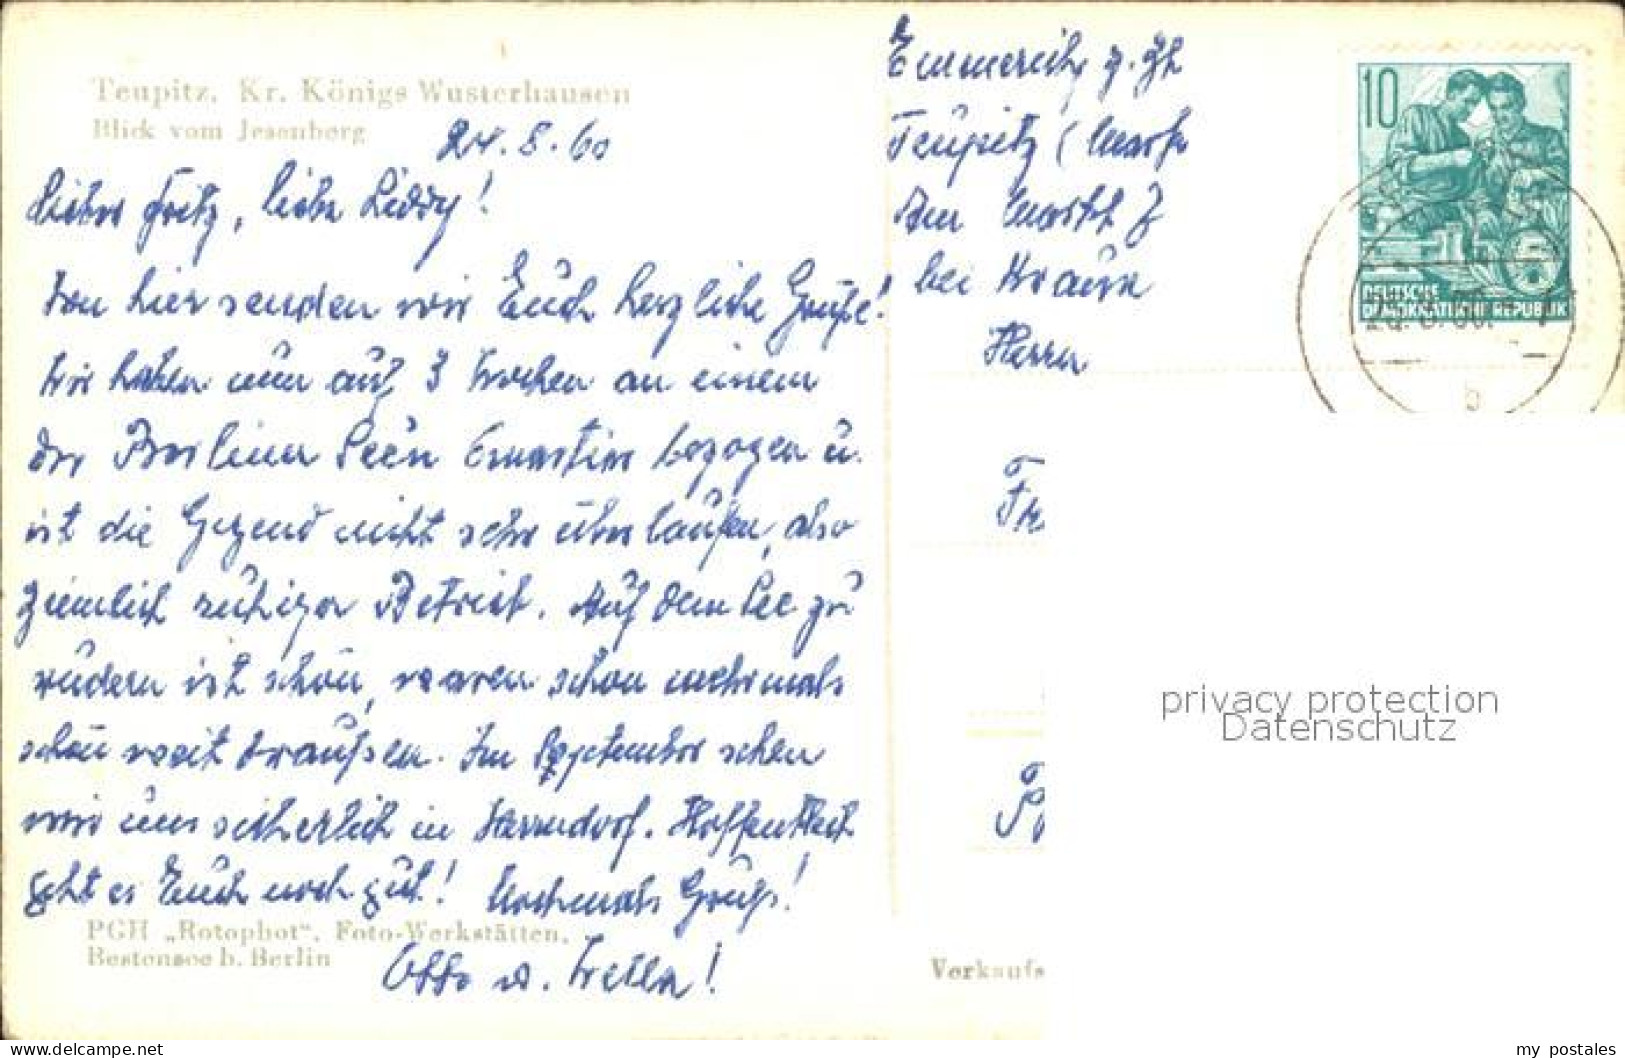 Teupitz, Kr. Königs Wusterhausen
Blick vom Jesenberg
24.8.60
Lieber Fritz, liebe Liddy!
Von hier senden wir Euch herzliche Grüße!
Wir haben nun auf 3 Wochen an einem
der Berliner Seen Quartier bezogen u.
ist die Gegend nicht sehr überlaufen, also
ziemlich ruhiger Betrieb. Auf dem See zu
rudern ist schön, waren schon mehrmals
schön weit draußen. Im September sehen
wir uns sicherlich in Herrndorf. Hoffentlich
geht es Euch noch gut! Nochmals Gruß!
Otto u.
PGH „Rotophot“, Foto-Werkstätten,
Bestensee b. Berlin
Emmerich z. Zt
Teupitz (Mark
Am Markt 7
bei
Herrn
Verkaufs
10
DEUTSCHE
DEMOKRATISCHE REPUBLIK
privacy protection
Datenschutz
my postales